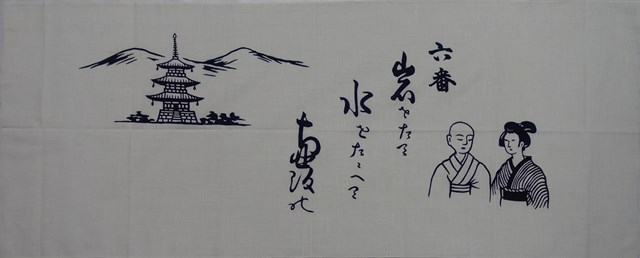 六番
岩をたて
水をたゝへて
壺阪の